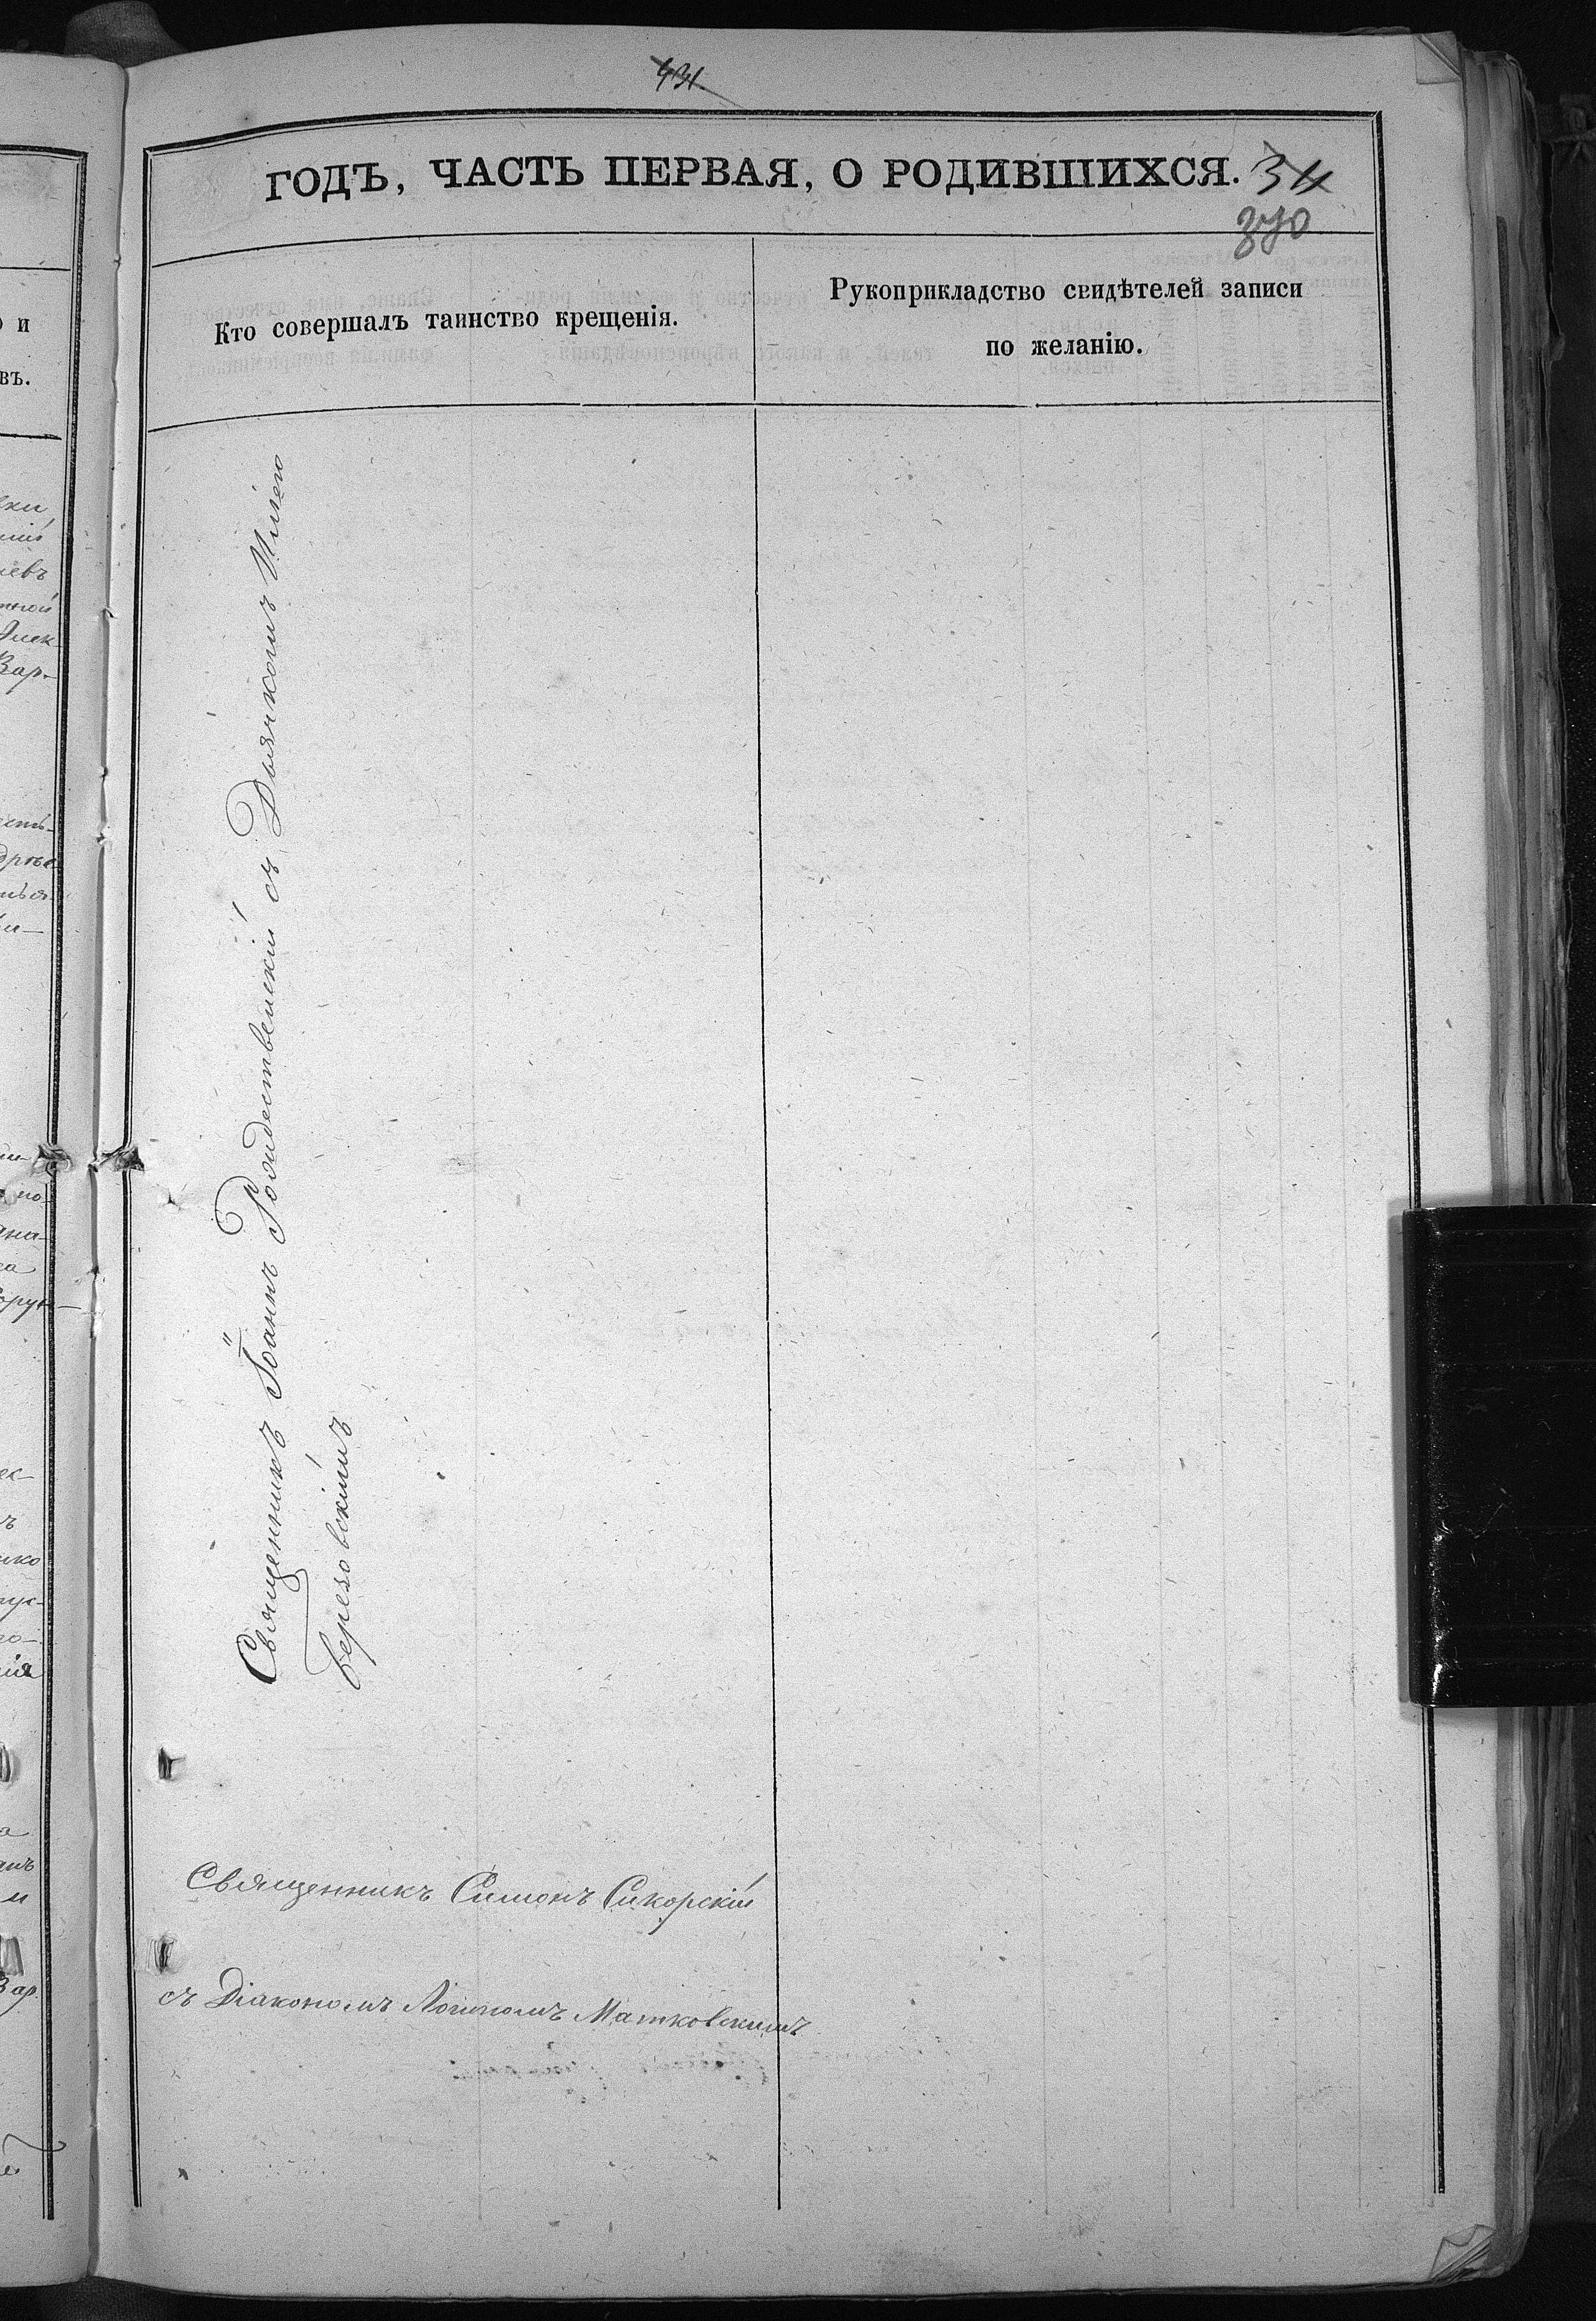 431.
ГОДЪ, ЧАСТЬ ПЕРВАЯ, О РОДИВШИХСЯ. 34
370
Кто совершалъ таинство крещенія.
Рукоприкладство свидѣтелей записи
по желаніюю.
Священникъ Іоаннъ Рождественскій съ Дьячкомъ Ильею
Березовскимъ
Священникъ Симонъ Сикорскій
съ Діакономъ Матковскимъ